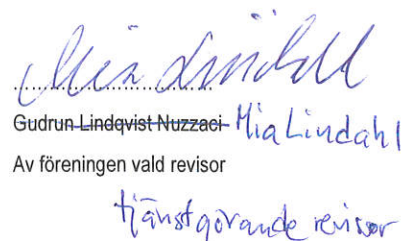 Mia Lindahl
Gudrun Lindqvist Nuzzaci Mia Lindahl
Av föreningen vald revisor
tjänstgörande revisor